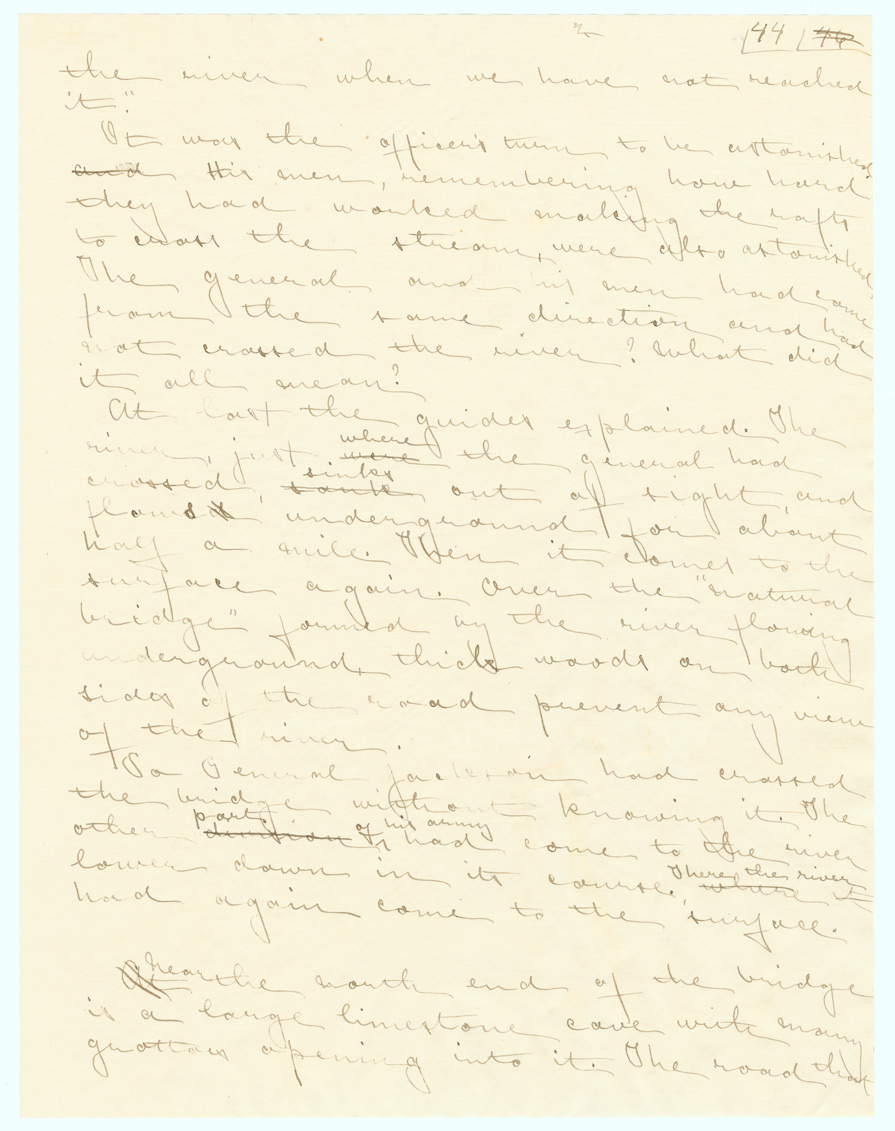 44 46
the river when we have not reached
it."
It was the officer's turn to be astonished.
and His men, remembering how hard
they had worked making the rafts
to cross the stream, were also astonished.
The general and his men had come
from the same direction and had
not crossed the river? What did
it all mean?
At last the guides explained. The
where
river, just were the general had
sinks
crossed, sank out of sight, and
flows underground for about
half a mile. Then it comes to the
surface again. Over the "natural
bridge" formed by the river flowing
underground, thick woods on both
sides of the road prevent any view
of the river.
So General Jackson had crossed
the bridge without knowing it. The
part of his army
other division had come to the river
There the river
lower down in its course, where it
had again come to the surface.
Near
At the north end of the bridge
is a large limestone cave with many
grottoes opening into it. The road that